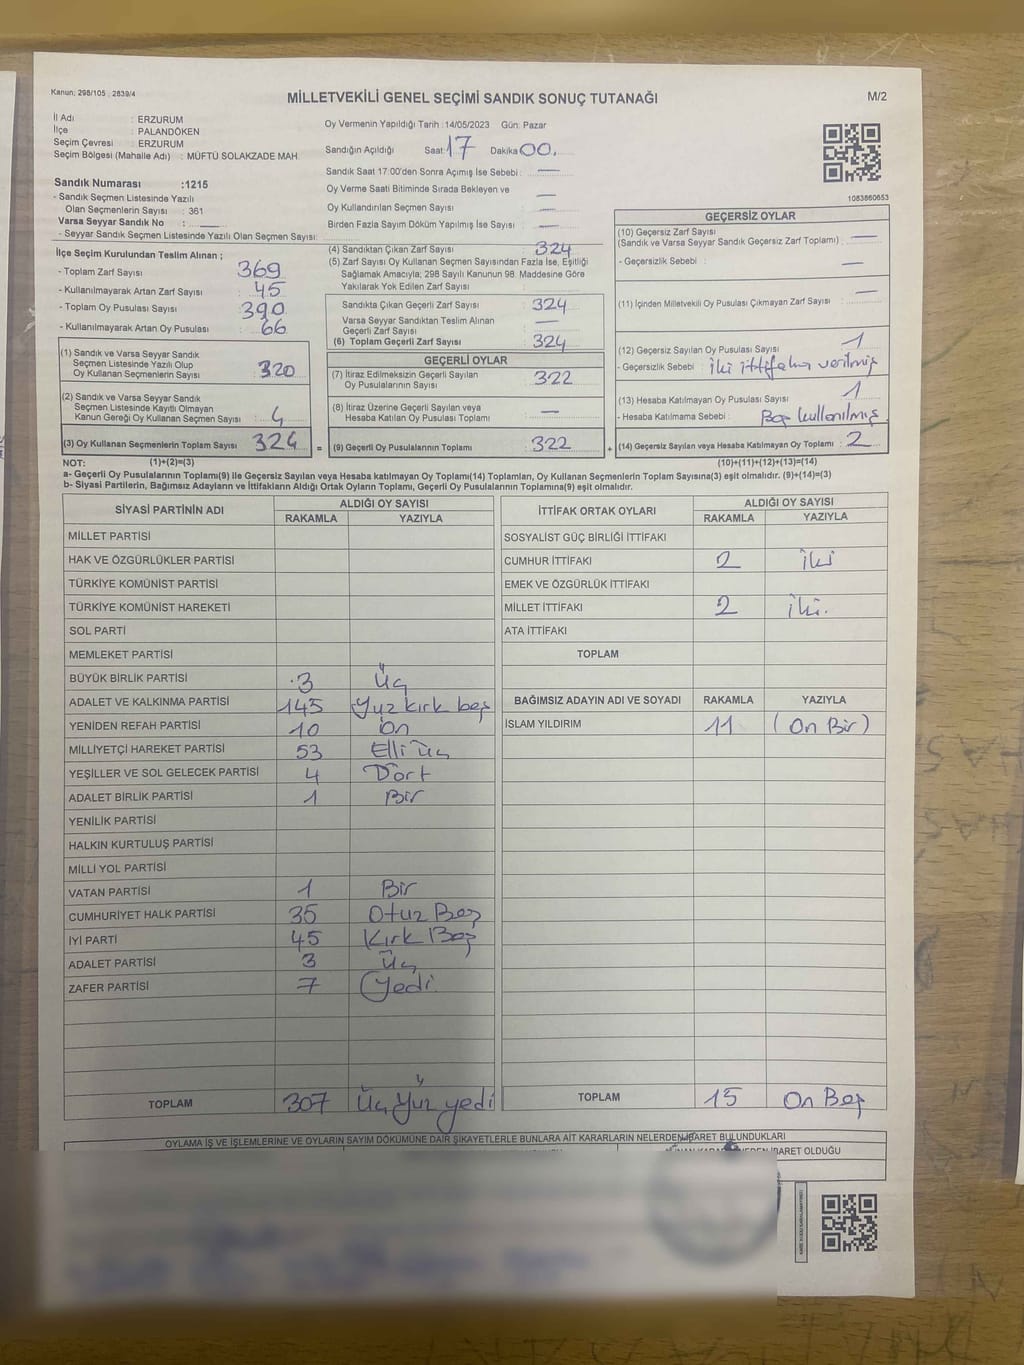 Kanun; 298/105 , 2839/4
MİLLETVEKİLİ GENEL SEÇİMİ SANDIK SONUÇ TUTANAĞI
M/2
İl Adı : ERZURUM
İlçe : PALANDÖKEN
Seçim Çevresi : ERZURUM
Seçim Bölgesi (Mahalle Adı) : MÜFTÜ SOLAKZADE MAH.
Oy Vermenin Yapıldığı Tarih :14/05/2023 Gün: Pazar
Sandığın Açıldığı Saat: 17 Dakika 00.
Sandık Saat 17:00'den Sonra Açımış İse Sebebi : —
Oy Verme Saati Bitiminde Sırada Bekleyen ve —
Oy Kullandırılan Seçmen Sayısı : —
Birden Fazla Sayım Döküm Yapılmış İse Sayısı : —
1083860653
Sandık Numarası :1215
- Sandık Seçmen Listesinde Yazılı
Olan Seçmenlerin Sayısı : 361
Varsa Seyyar Sandık No :
- Seyyar Sandık Seçmen Listesinde Yazılı Olan Seçmen Sayısı:
İlçe Seçim Kurulundan Teslim Alınan ;
- Toplam Zarf Sayısı 369
- Kullanılmayarak Artan Zarf Sayısı : 45
- Toplam Oy Pusulası Sayısı : 390
- Kullanılmayarak Artan Oy Pusulası : 66
(1) Sandık ve Varsa Seyyar Sandık
Seçmen Listesinde Yazılı Olup
Oy Kullanan Seçmenlerin Sayısı : 320
(2) Sandık ve Varsa Seyyar Sandık
Seçmen Listesinde Kayıtlı Olmayan
Kanun Gereği Oy Kullanan Seçmen Sayısı : 4
(3) Oy Kullanan Seçmenlerin Toplam Sayısı 324 =
(4) Sandıktan Çıkan Zarf Sayısı : 324
(5) Zarf Sayısı Oy Kullanan Seçmen Sayısından Fazla İse, Eşitliği
Sağlamak Amacıyla; 298 Sayılı Kanunun 98. Maddesine Göre
Yakılarak Yok Edilen Zarf Sayısı :
Sandıkta Çıkan Geçerli Zarf Sayısı : 324
Varsa Seyyar Sandıktan Teslim Alınan
Geçerli Zarf Sayısı —
(6) Toplam Geçerli Zarf Sayısı : 324
GEÇERLİ OYLAR
(7) İtiraz Edilmeksizin Geçerli Sayılan
Oy Pusulalarının Sayısı : 322
(8) İtiraz Üzerine Geçerli Sayılan veya
Hesaba Katılan Oy Pusulaları Toplamı : —
(9) Geçerli Oy Pusulalarının Toplamı : 322 +
GEÇERSİZ OYLAR
(10) Geçersiz Zarf Sayısı
(Sandık ve Varsa Seyyar Sandık Geçersiz Zarf Toplamı) : —
- Geçersizlik Sebebi : —
(11) İçinden Milletvekili Oy Pusulası Çıkmayan Zarf Sayısı : —
(12) Geçersiz Sayılan Oy Pusulası Sayısı : 1
- Geçersizlik Sebebi : iki ittifaka verilmiş
(13) Hesaba Katılmayan Oy Pusulası Sayısı : 1
- Hesaba Katılmama Sebebi : Boş kullanılmış
(14) Geçersiz Sayılan veya Hesaba Katılmayan Oy Toplamı : 2
NOT: (1)+(2)=(3)
(10)+(11)+(12)+(13)=(14)
a- Geçerli Oy Pusulalarının Toplamı(9) ile Geçersiz Sayılan veya Hesaba katılmayan Oy Toplamı(14) Toplamları, Oy Kullanan Seçmenlerin Toplam Sayısına(3) eşit olmalıdır. (9)+(14)=(3)
b- Siyasi Partilerin, Bağımsız Adayların ve İttifakların Aldığı Ortak Oyların Toplamı, Geçerli Oy Pusulalarının Toplamına(9) eşit olmalıdır.
SİYASİ PARTİNİN ADI ALDIĞI OY SAYISI
RAKAMLA YAZIYLA
MİLLET PARTİSİ
HAK VE ÖZGÜRLÜKLER PARTİSİ
TÜRKİYE KOMÜNİST PARTİSİ
TÜRKİYE KOMÜNİST HAREKETİ
SOL PARTİ
MEMLEKET PARTİSİ
BÜYÜK BİRLİK PARTİSİ 3 Üç
ADALET VE KALKINMA PARTİSİ 145 Yüz kırk beş
YENİDEN REFAH PARTİSİ 10 on
MİLLİYETÇİ HAREKET PARTİSİ 53 Elli üç
YEŞİLLER VE SOL GELECEK PARTİSİ 4 Dört
ADALET BİRLİK PARTİSİ 1 Bir
YENİLİK PARTİSİ
HALKIN KURTULUŞ PARTİSİ
MİLLİ YOL PARTİSİ
VATAN PARTİSİ 1 Bir
CUMHURİYET HALK PARTİSİ 35 Otuz Beş
İYİ PARTİ 45 Kırk Beş
ADALET PARTİSİ 3 Üç
ZAFER PARTİSİ 7 Yedi
TOPLAM 307 Üç Yüz yedi
İTTİFAK ORTAK OYLARI ALDIĞI OY SAYISI
RAKAMLA YAZIYLA
SOSYALİST GÜÇ BİRLİĞİ İTTİFAKI
CUMHUR İTTİFAKI 2 iki
EMEK VE ÖZGÜRLÜK İTTİFAKI
MİLLET İTTİFAKI 2 iki.
ATA İTTİFAKI
TOPLAM
BAĞIMSIZ ADAYIN ADI VE SOYADI RAKAMLA YAZIYLA
İSLAM YILDIRIM 11 (On Bir)
TOPLAM 15 On Beş
OYLAMA İŞ VE İŞLEMLERİNE VE OYLARIN SAYIM DÖKÜMÜNE DAİR ŞİKAYETLERLE BUNLARA AİT KARARLARIN NELERDEN İBARET BULUNDUKLARI
İBARET OLDUĞU